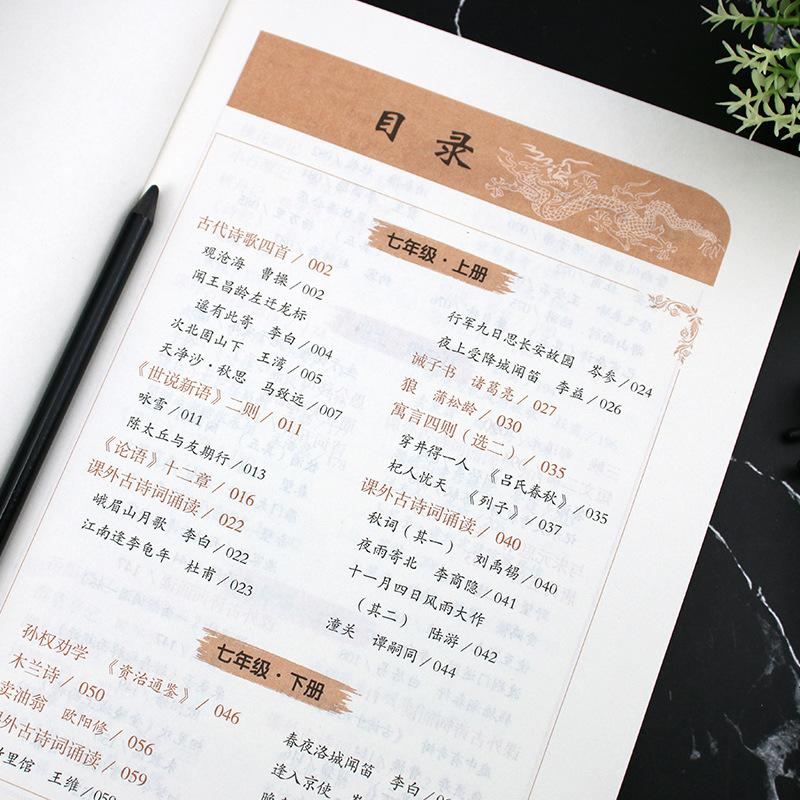 目录
七年级·上册
古代诗歌四首 / 002
观沧海 曹操 / 002
闻王昌龄左迁龙标
遥有此寄 李白 / 004
次北固山下 王湾 / 005
天净沙·秋思 马致远 / 007
《世说新语》二则 / 011
咏雪 / 011
陈太丘与友期行 / 013
《论语》十二章 / 016
课外古诗词诵读 / 022
峨眉山月歌 李白 / 022
江南逢李龟年 杜甫 / 023
行军九日思长安故园 岑参 / 024
夜上受降城闻笛 李益 / 026
诫子书 诸葛亮 / 027
狼 蒲松龄 / 030
寓言四则（选二） / 035
穿井得一人 《吕氏春秋》 / 035
杞人忧天 《列子》 / 037
课外古诗词诵读 / 040
秋词（其一） 刘禹锡 / 040
夜雨寄北 李商隐 / 041
十一月四日风雨大作
（其二） 陆游 / 042
潼关 谭嗣同 / 044
七年级·下册
孙权劝学 《资治通鉴》 / 046
木兰诗 / 050
卖油翁 欧阳修 / 056
课外古诗词诵读 / 059
里馆 王维 / 059
春夜洛城闻笛 李白
逢入京使